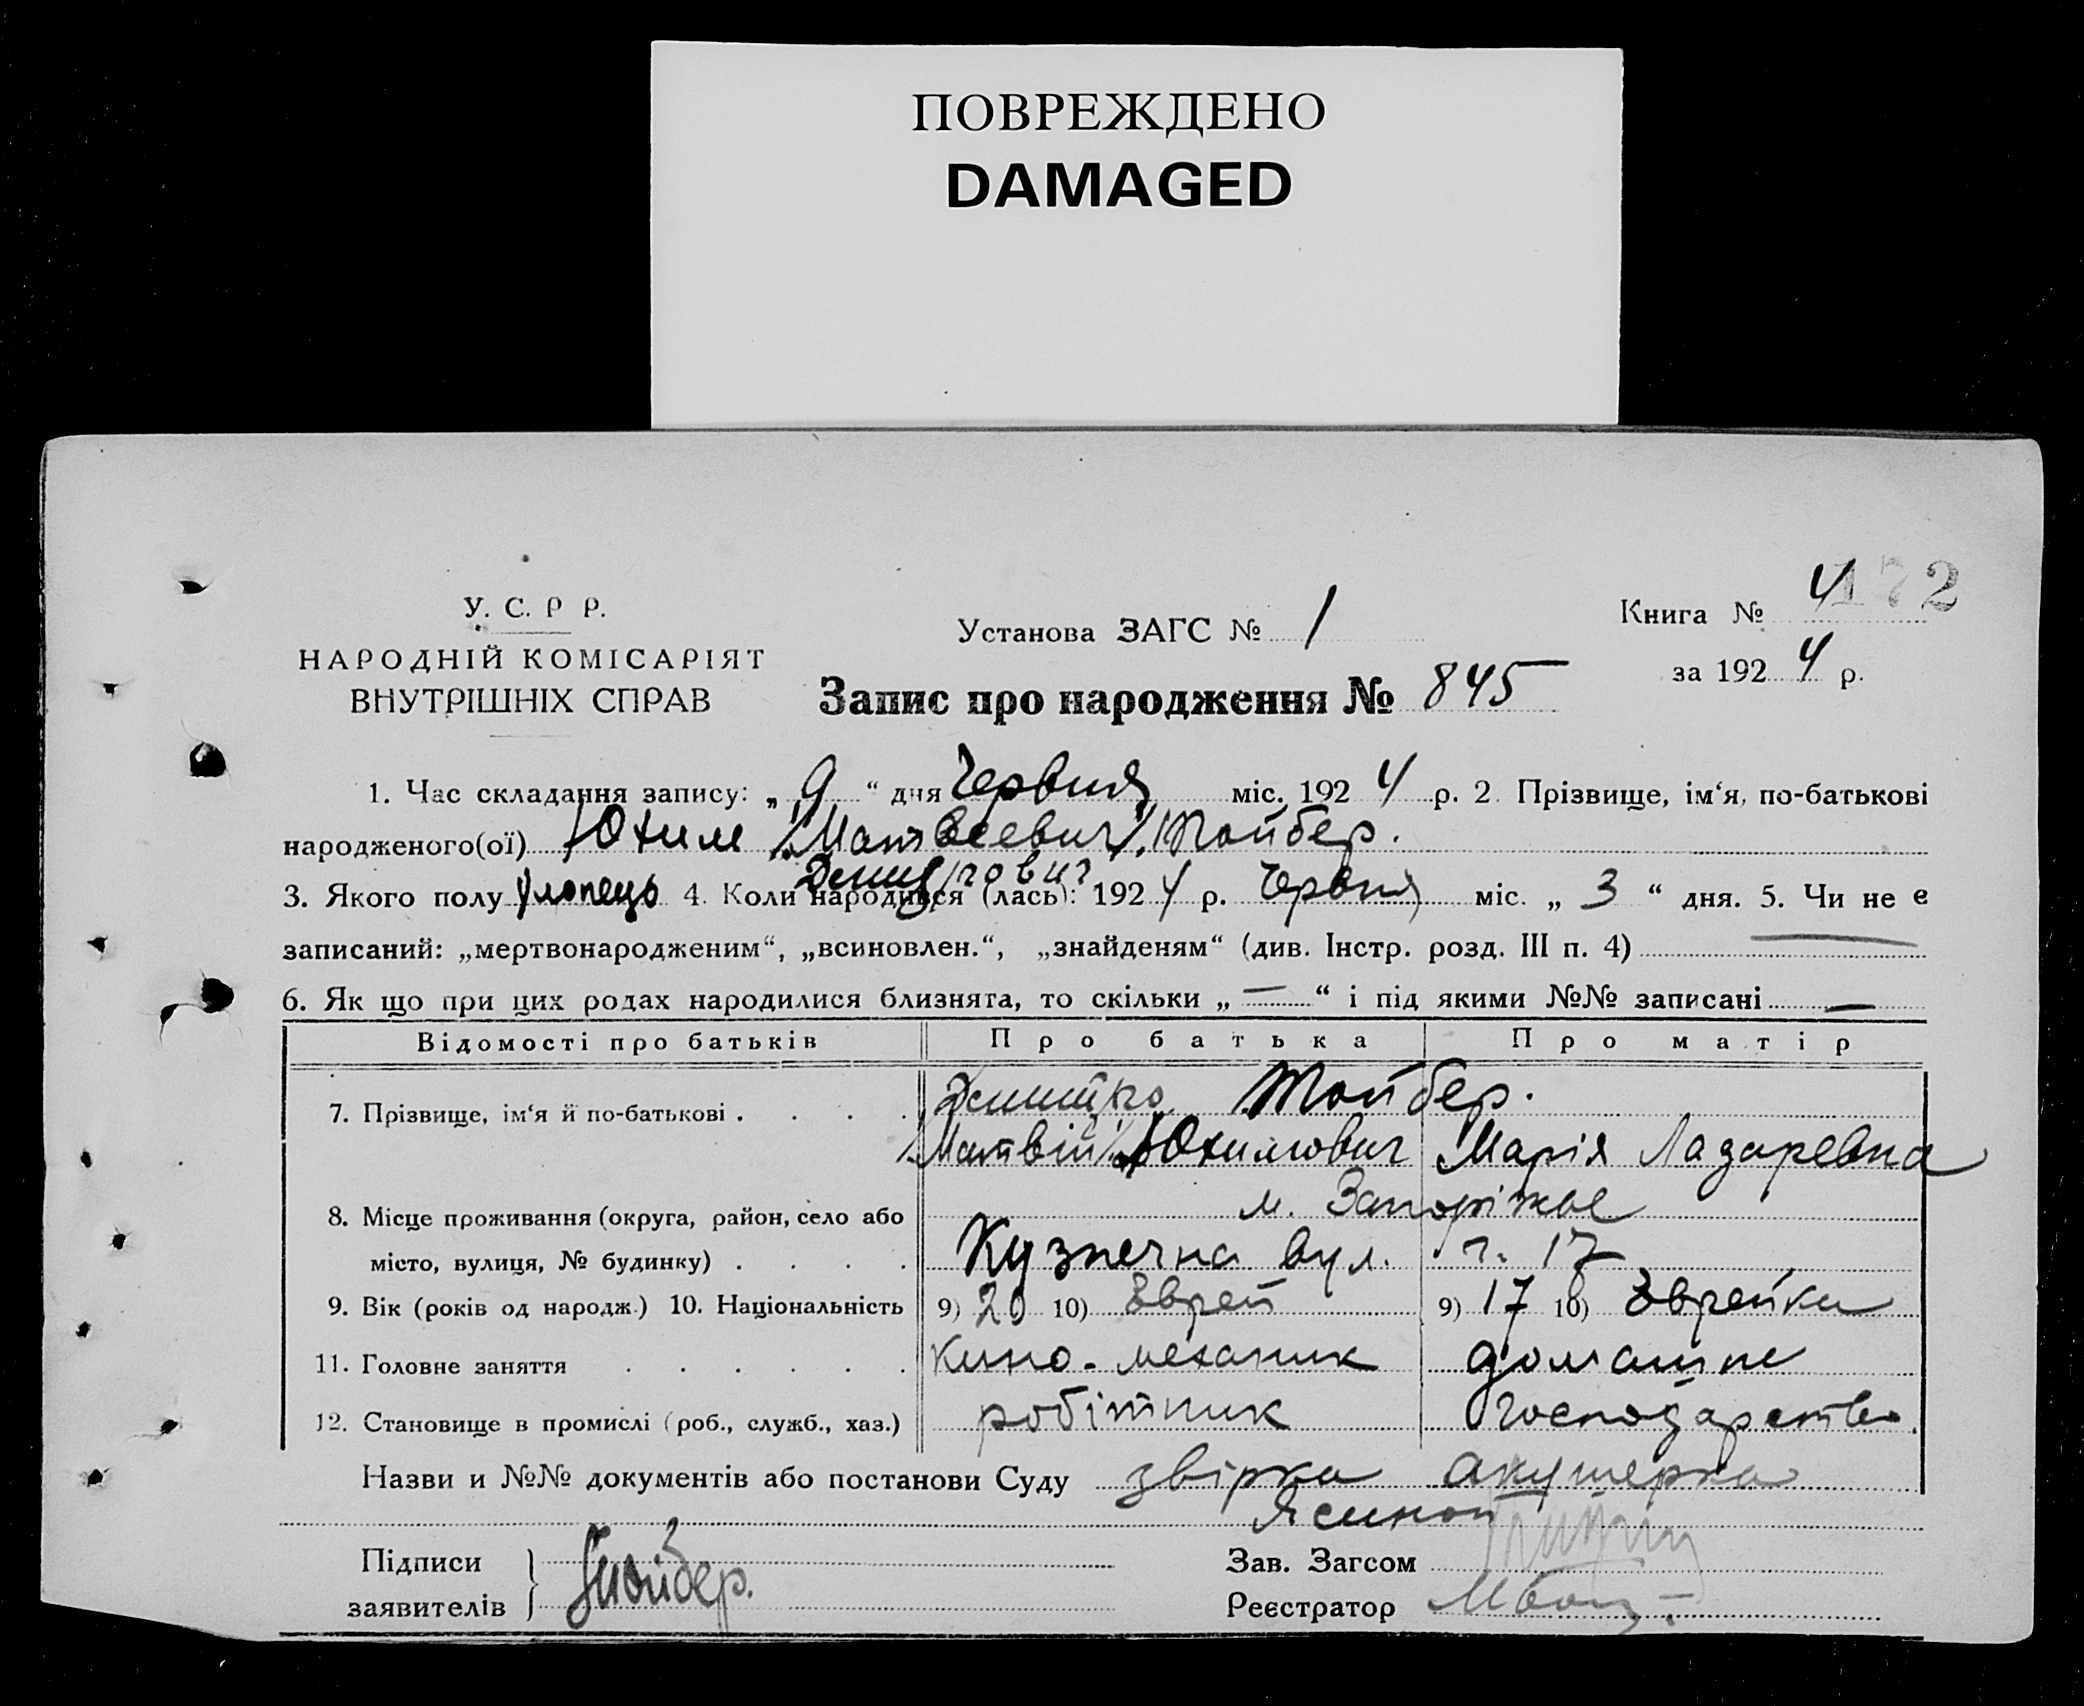 ПОВРЕЖДЕНО
DAMAGED
172
У. С. Р Р.
НАРОДНІЙ КОМІСАРІЯТ
ВНУТРІШНІХ СПРАВ
Установа ЗАГС № 1
Книга № 4
за 192 4 р.
Запис про народження № 845
1. Час складання запису: „ 9 “ дня Червня міс. 192 4 р. 2. Прізвище, ім‘я, по-батькові
народженого(ої) Юхим /Матвеевич/ Тойбер.
3. Якого полу хлопець 4. Коли народився (лась): 192 4 р. Червня міс. „ 3 “ дня. 5. Чи не є
записаний: „мертвонародженим“, „всиновлен.“, „знайденям“ (див. Інстр. розд. III п. 4) —
6. Як що при цих родах народилися близнята, то скільки „ — “ і під якими №№ записані —
Відомості про батьків Про батька Про матір
7. Прізвище, ім‘я й по-батькові . . . . Тойбер.
/Матвій/ Юхимович Марія Лазаревна
8. Місце проживання (округа, район, село або м. Запоріжье
місто, вулиця, № будинку) . . . . Кузнечна вул. ч. 17
9. Вік (років од народж.) 10. Національність 9) 20 10) Еврей 9) 17 10) Еврейка
11. Головне заняття . . . . . . Кино-механик домашне
12. Становище в промислі (роб., служб., хаз.) робітник господарство.
Назви и №№ документів або постанови Суду звірка акушерка
Ясиной
Підписи
заявителів
Тойбер.
Зав. Загсом
Реєстратор